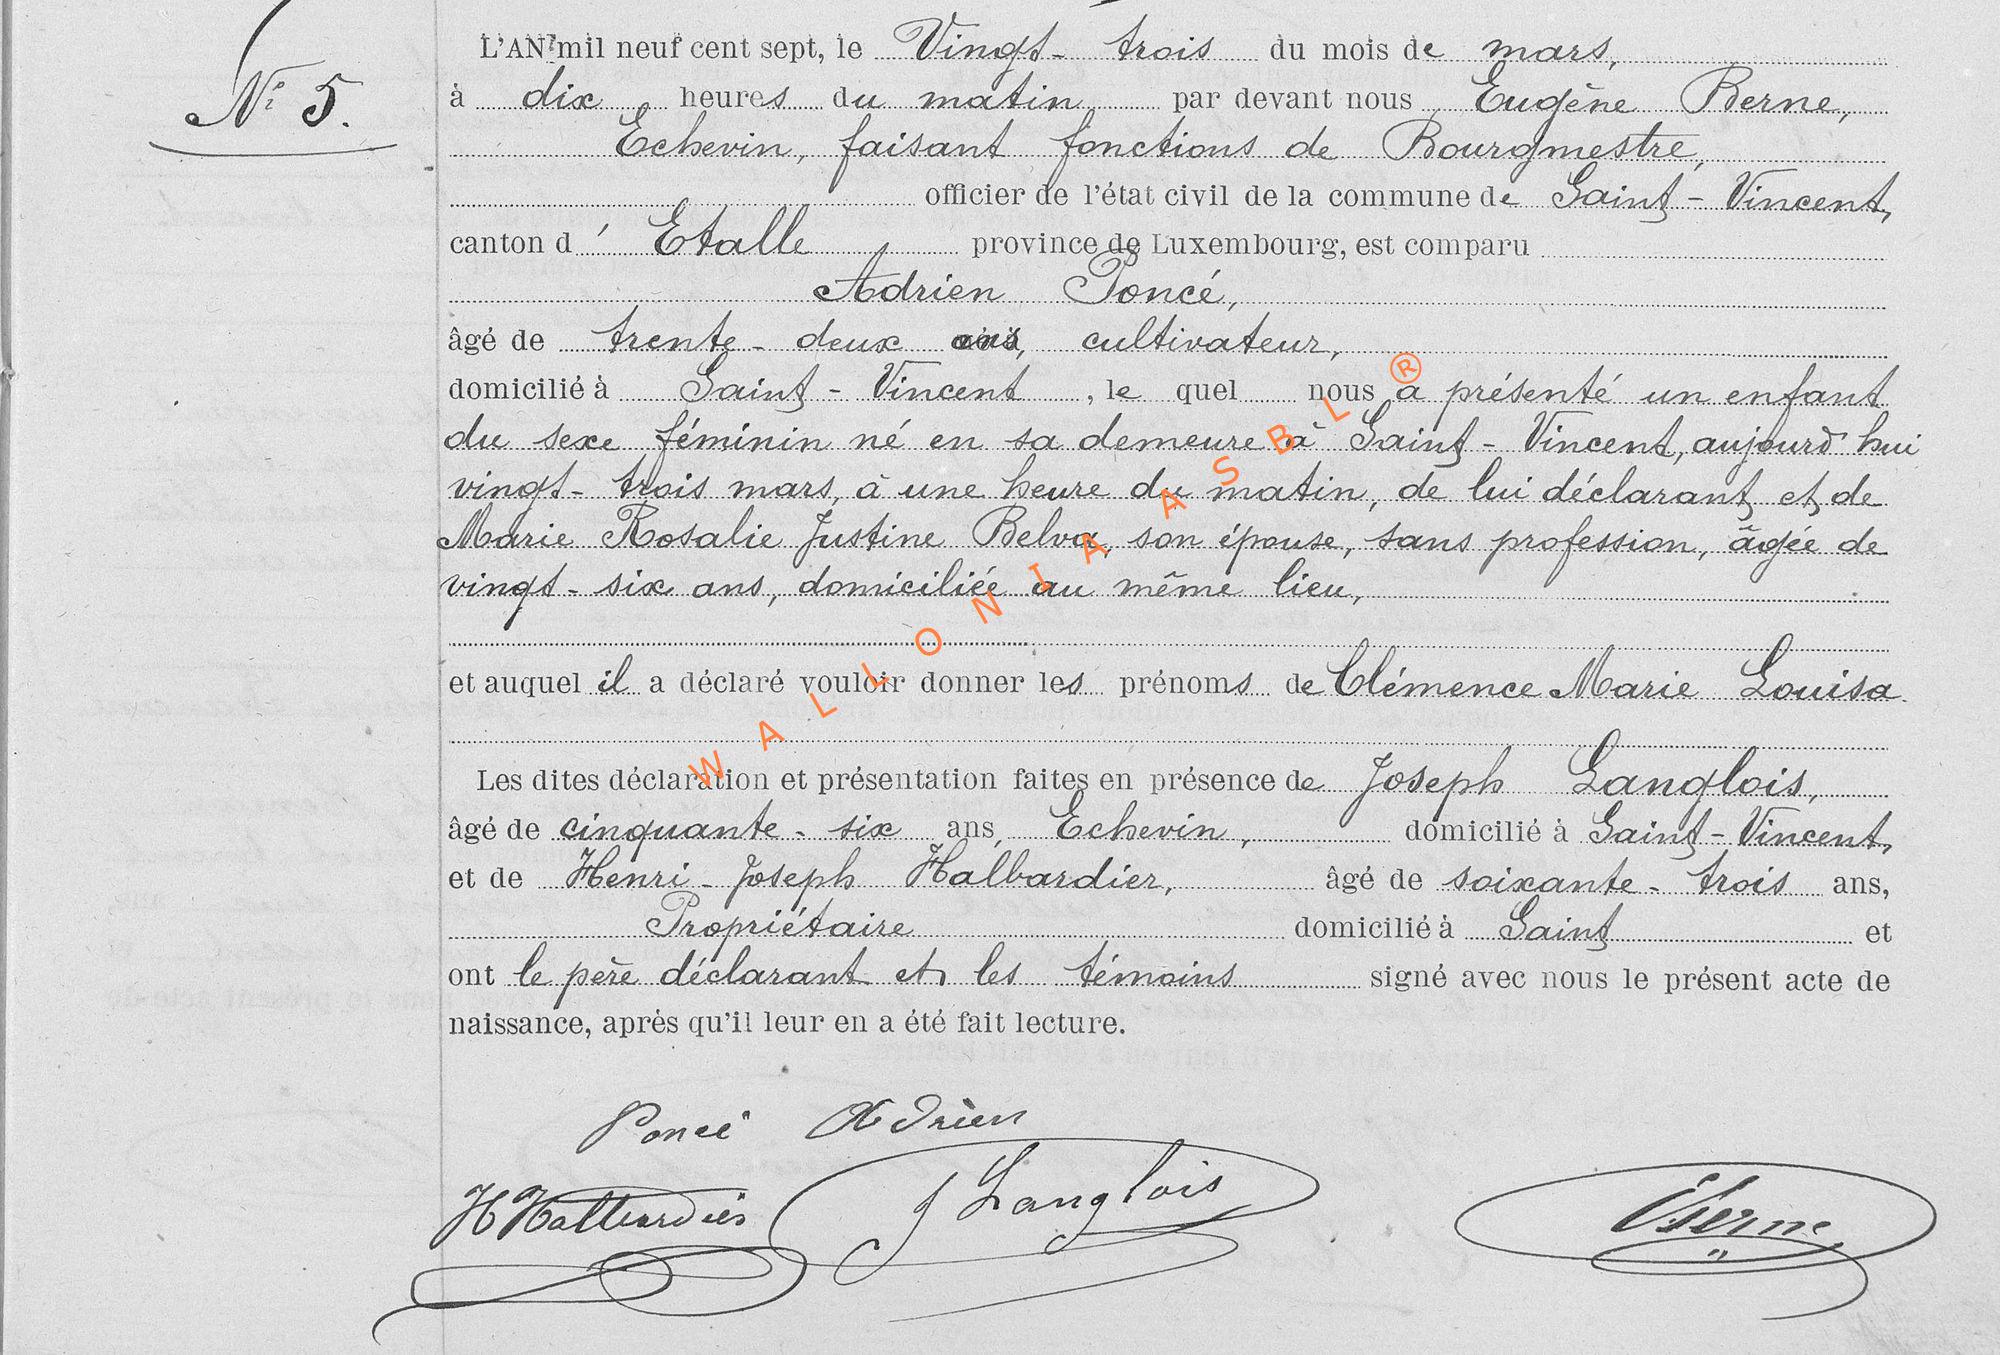 N° 5.
L'AN mil neuf cent sept, le Vingt-trois du mois de mars,
à dix heures du matin par devant nous Eugène Berne,
Echevin, faisant fonctions de Bourgmestre,
officier de l'état civil de la commune de Saint-Vincent,
canton d' Etalle province de Luxembourg, est comparu
Adrien Poncé,
âgé de trente-deux ans, cultivateur,
domicilié à Saint-Vincent, le quel nous a présenté un enfant
du sexe féminin né en sa demeure à Saint-Vincent, aujourd'hui
vingt-trois mars, à une heure du matin, de lui déclarant et de
Marie Rosalie Justine Belva, son épouse, sans profession, âgée de
vingt-six ans, domiciliée au même lieu,
et auquel il a déclaré vouloir donner les prénoms de Clémence Marie Louisa.
Les dites déclaration et présentation faites en présence de Joseph Langlois,
âgé de cinquante-six ans, Echevin, domicilié à Saint-Vincent,
et de Henri-Joseph Halbardier, âgé de soixante-trois ans,
Propriétaire domicilié à Saint et
ont le père déclarant et les témoins signé avec nous le présent acte de
naissance, après qu'il leur en a été fait lecture.
Poncé Adrien
H Halbardier J Langlois Berne
WALLONIA ASBL ®